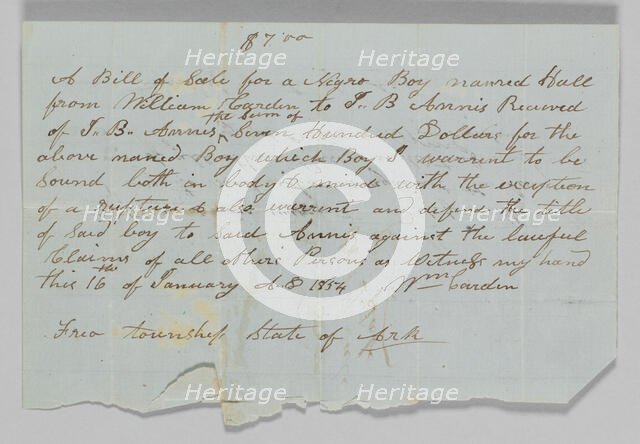 $700
A Bill of Sale for a Negro Boy named Hall
from William Carden to J. B Annis Received
of J. B. Annis the Sum of Seven Hundred Dollars for the
above named Boy which Boy I warrent to be
Sound both in body & mind with the exception
of a rupture & also warrent and defend the title
of Said boy to said Annis against the lawful
Claims of all other Persons as Witness my hand
this 16th of January 1854 Wm Carden
township State of Ark
Heritage Images
Heritage Images
Heritage Images
Heritage Images
Heritage Images
Heritage Images
Heritage Images
C